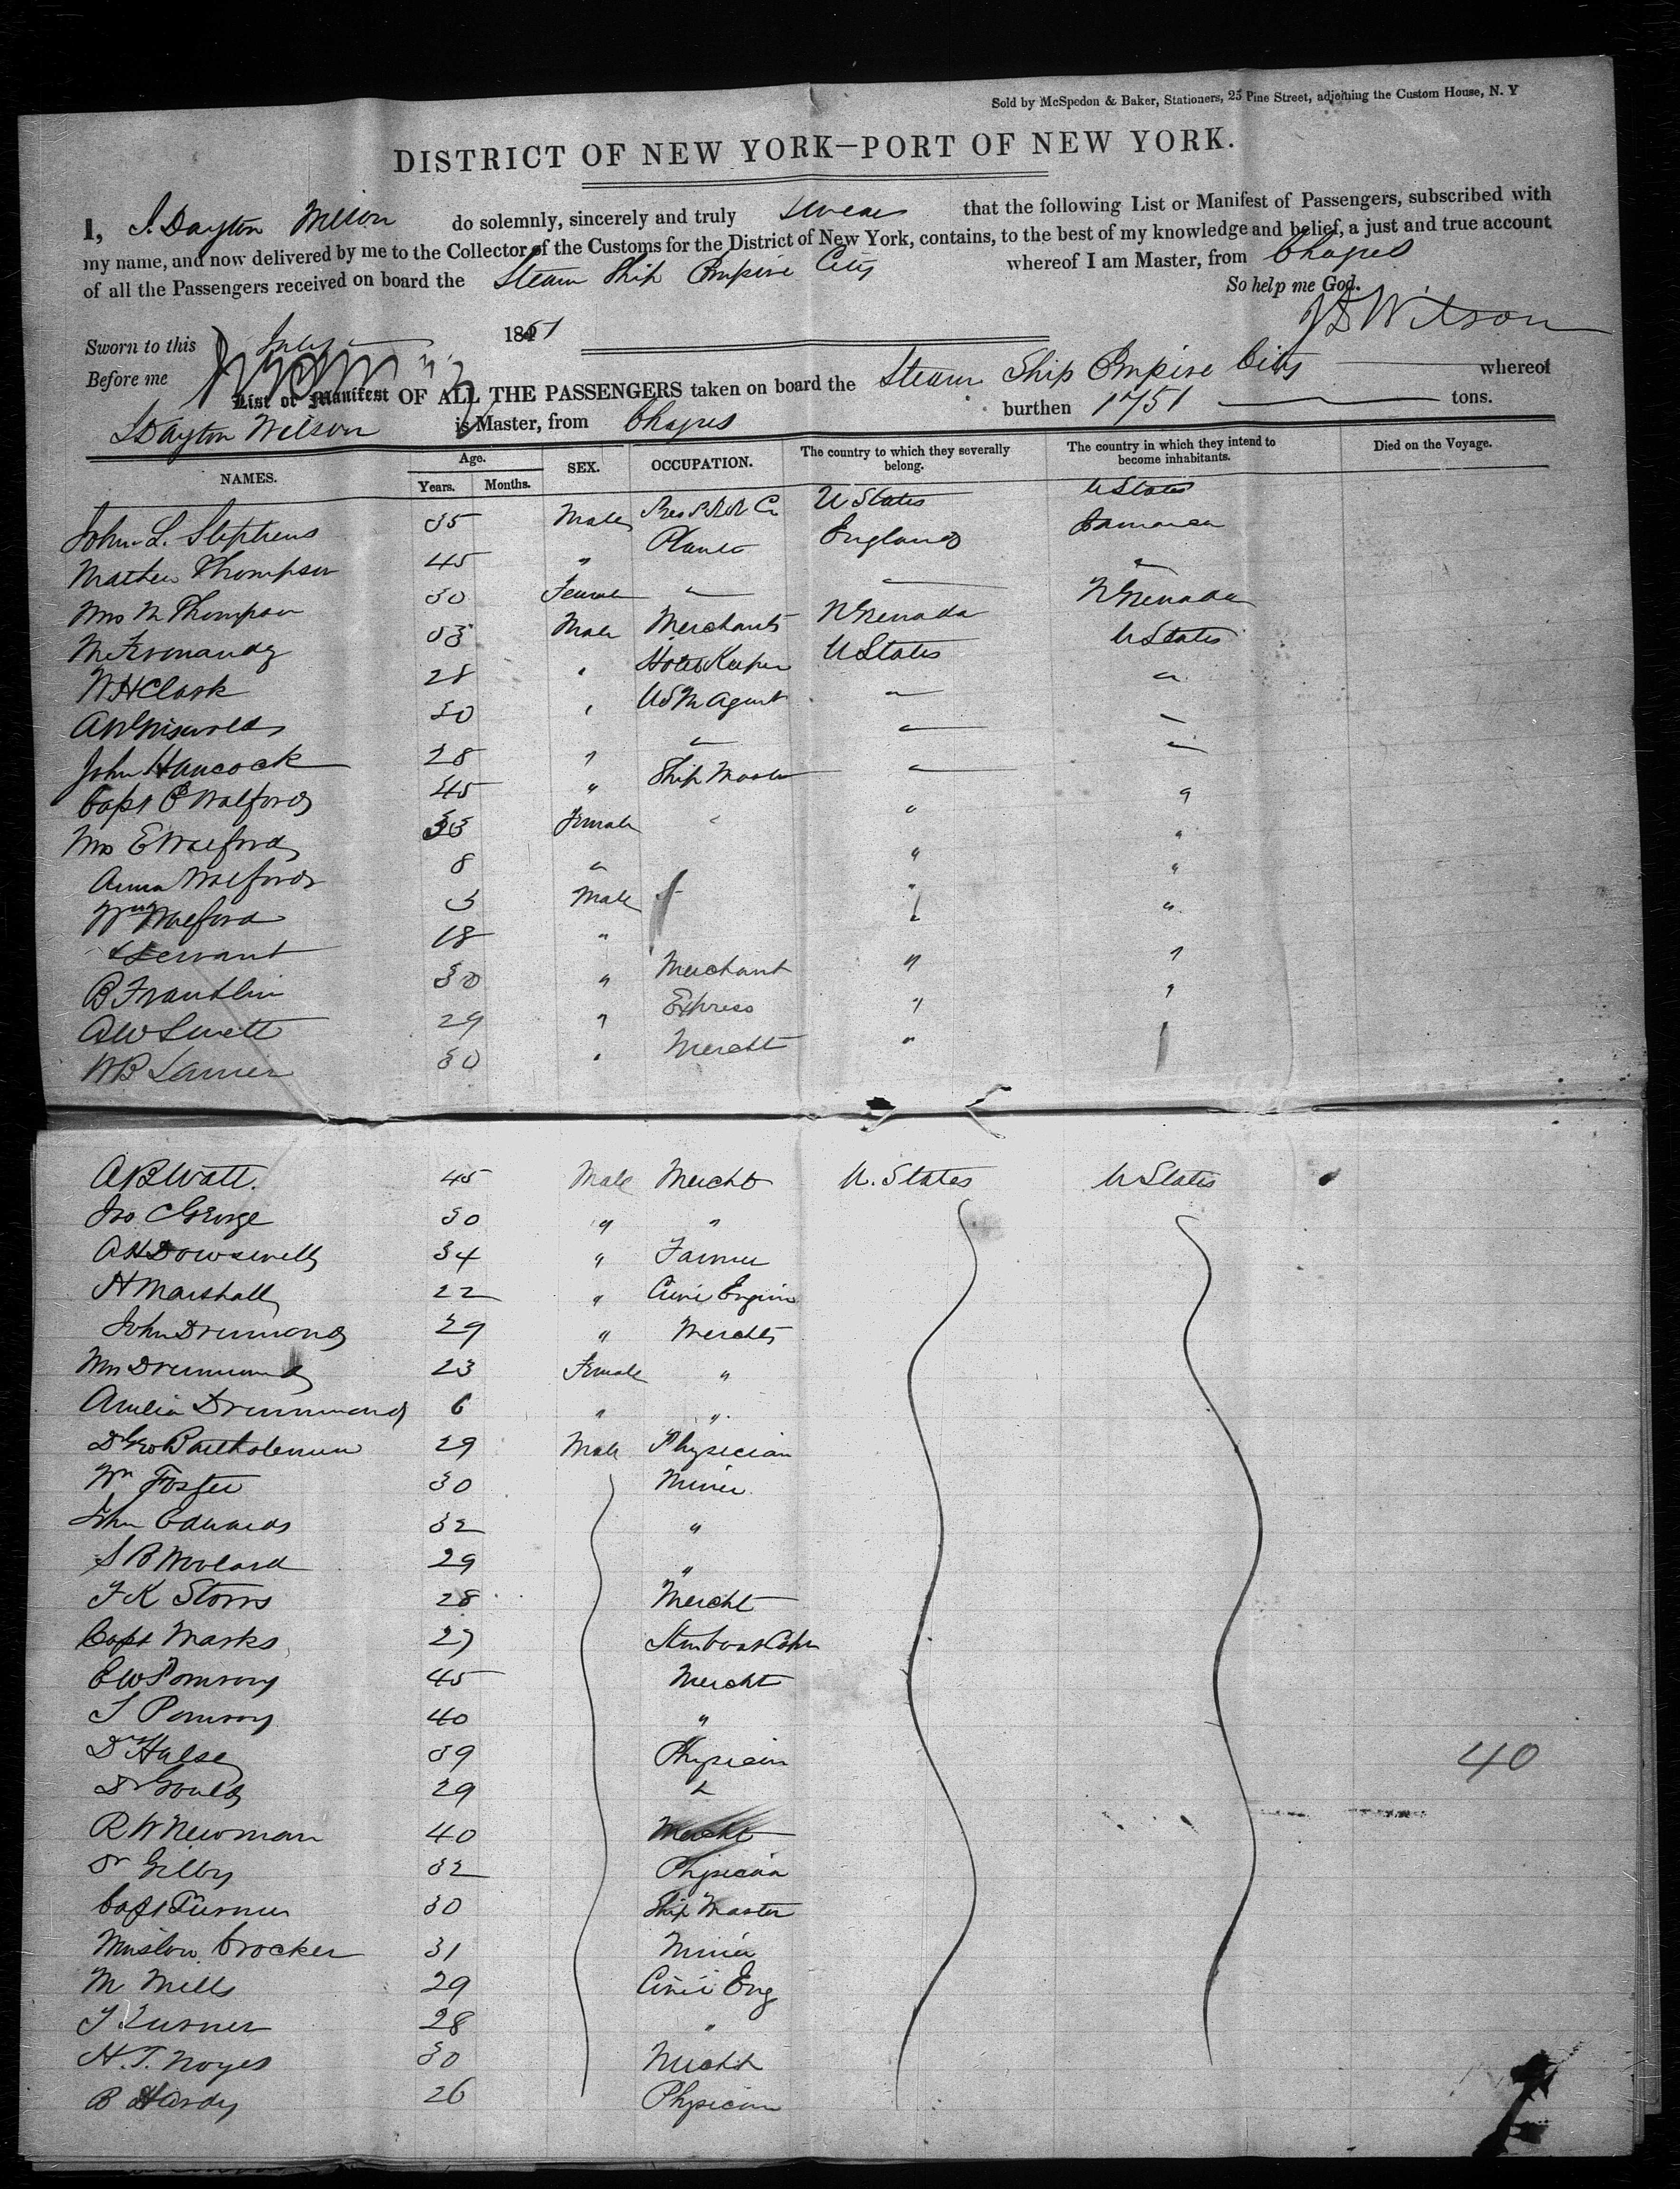 Sold by McSpedon & Baker, Stationers, 25 Pine Street, adjoining the Custom House, N. Y
DISTRICT OF NEW YORK—PORT OF NEW YORK.
I, J. Dayton Wilson do solemnly, sincerely and truly swear that the following List or Manifest of Passengers, subscribed with
my name, and now delivered by me to the Collector of the Customs for the District of New York, contains, to the best of my knowledge and belief, a just and true account
of all the Passengers received on board the Steam Ship Empire City whereof I am Master, from Chagres
So help me God.
Sworn to this July 1851 J D Wilson
Before me
List or Manifest OF ALL THE PASSENGERS taken on board the Steam Ship Empire City whereof
J Dayton Wilson is Master, from Chagres burthen 1751 tons.
NAMES. Age. Years. Months. SEX. OCCUPATION. The country to which they severally belong. The country in which they intend to become inhabitants. Died on the Voyage.
John L. Stephens 35 Male Pres P.R.R Co U States U States
Mathew Thompson 45 " Planter England Jamaica
Mrs M Thompson 30 Female "
M Fernandez 33 Male Merchant N Grenada N Grenada
W H Clark 28 " Hotel Keeper U States U States
A W Griswold 30 " U S M Agent " "
John Hancock 28 " " " "
Capt C Walford 45 " Ship Master " "
Mrs E Walford 33 Female " " "
Anna Walford 8 " " "
Wm Walford 3 Male " "
Servant 18 " " "
B Franklin 30 " Merchant " "
A W 29 " Express " "
W B Lanier 30 " Mercht "
A B Watt. 45 Male Mercht U. States U States
Jno C George 30 " "
A H Dowswell 34 " Farmer
H Marshall 22 " Civil Engin
John Drummond 29 " Mercht
Mrs Drummond 23 Female "
Amelia Drummond 6 " "
Dr Geo Bartholemew 29 Male Physician
Wm Foster 30 Miner
John Edwards 32 "
S B Woolard 29 "
F K Storrs 28 Mercht
Capt Marks 27 Steamboat Captn
E W Pomroy 45 Mercht
S Pomroy 40 "
Dr Halsey 39 Physician
Dr Gould 29 "
R W Newman 40 Mercht
Dr Gilby 32 Physician
Capt Turner 30 Ship Master
Winslow Crocker 31 Miner
M Mills 29 Civil Eng
J Turner 28 "
H. T. Noyes 30 Mercht
B Hardy 26 Physician
40